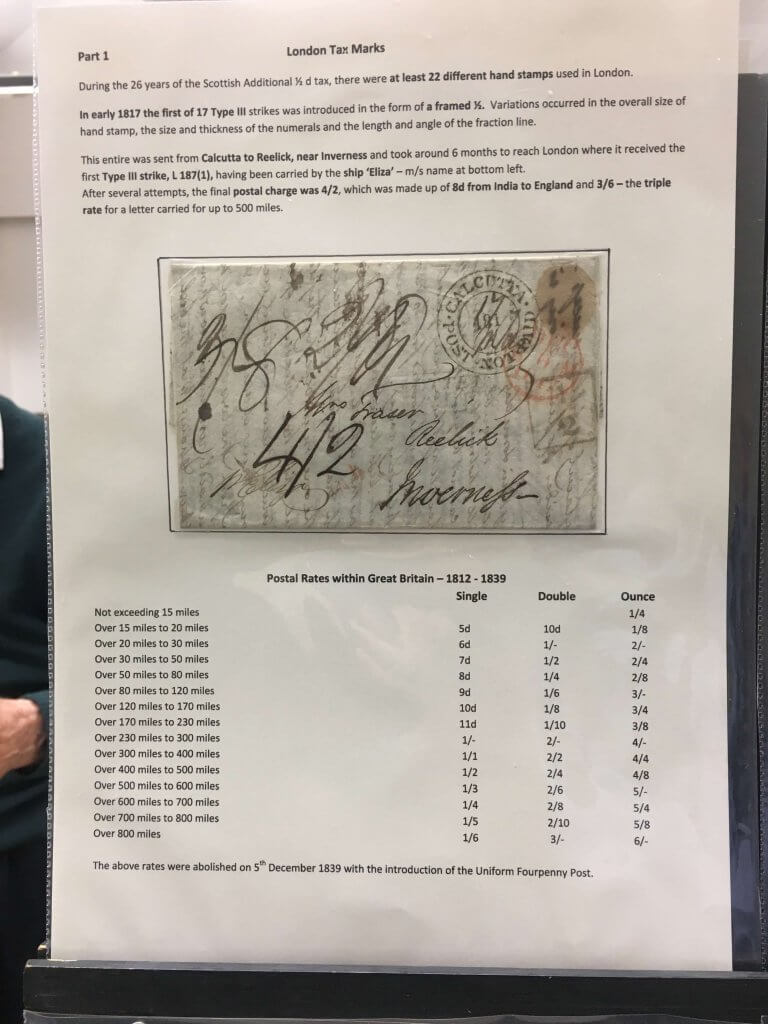 Part 1
London Tax Marks
During the 26 years of the Scottish Additional ½ d tax, there were at least 22 different hand stamps used in London.
In early 1817 the first of 17 Type III strikes was introduced in the form of a framed ½. Variations occurred in the overall size of
hand stamp, the size and thickness of the numerals and the length and angle of the fraction line.
This entire was sent from Calcutta to Reelick, near Inverness and took around 6 months to reach London where it received the
first Type III strike, L 187(1), having been carried by the ship ‘Eliza’ – m/s name at bottom left.
After several attempts, the final postal charge was 4/2, which was made up of 8d from India to England and 3/6 – the triple
rate for a letter carried for up to 500 miles.
CALCUTTA
POST
Mrs Fraser
Reelick
4/2
Inverness
Postal Rates within Great Britain – 1812 - 1839
Single Double Ounce
Not exceeding 15 miles 1/4
Over 15 miles to 20 miles 5d 10d 1/8
Over 20 miles to 30 miles 6d 1/- 2/-
Over 30 miles to 50 miles 7d 1/2 2/4
Over 50 miles to 80 miles 8d 1/4 2/8
Over 80 miles to 120 miles 9d 1/6 3/-
Over 120 miles to 170 miles 10d 1/8 3/4
Over 170 miles to 230 miles 11d 1/10 3/8
Over 230 miles to 300 miles 1/- 2/- 4/-
Over 300 miles to 400 miles 1/1 2/2 4/4
Over 400 miles to 500 miles 1/2 2/4 4/8
Over 500 miles to 600 miles 1/3 2/6 5/-
Over 600 miles to 700 miles 1/4 2/8 5/4
Over 700 miles to 800 miles 1/5 2/10 5/8
Over 800 miles 1/6 3/- 6/-
The above rates were abolished on 5th December 1839 with the introduction of the Uniform Fourpenny Post.